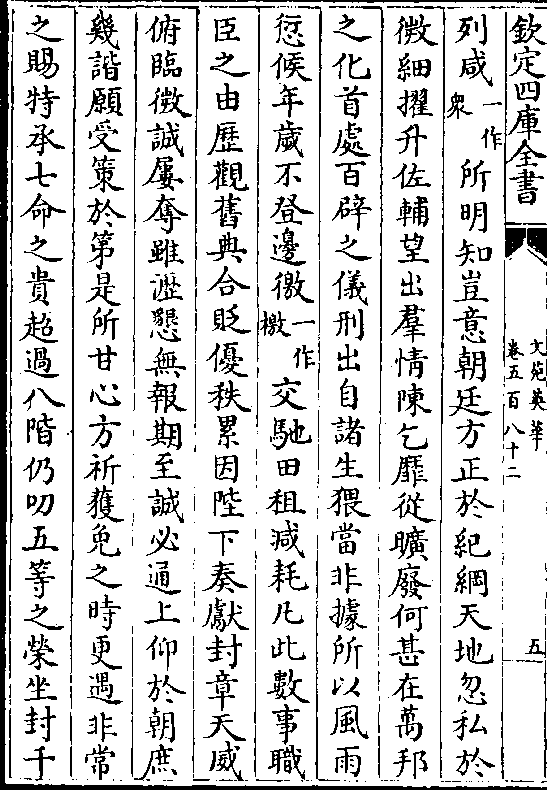 欽定四庫全書
文苑英華
卷五百八十二
五
列咸一作衆所明知豈意朝廷方正於紀綱天地忽私於
微細擢升佐輔望出羣情陳乞靡從曠廢何甚在萬邦
之化首處百辟之儀刑出自諸生猥當非據所以風雨
愆候年歲不登邊徼一作檄交馳田租減耗凡此數事職
臣之由歷觀舊典合貶優秩累因陛下奏獻封章天威
俯臨微誠屢奪雖瀝懇無報期至誠必通上仰於朝庶
幾諧願受策於第是所甘心方祈獲免之時更遇非常
之賜特承七命之貴超過八階仍叨五等之榮坐封千